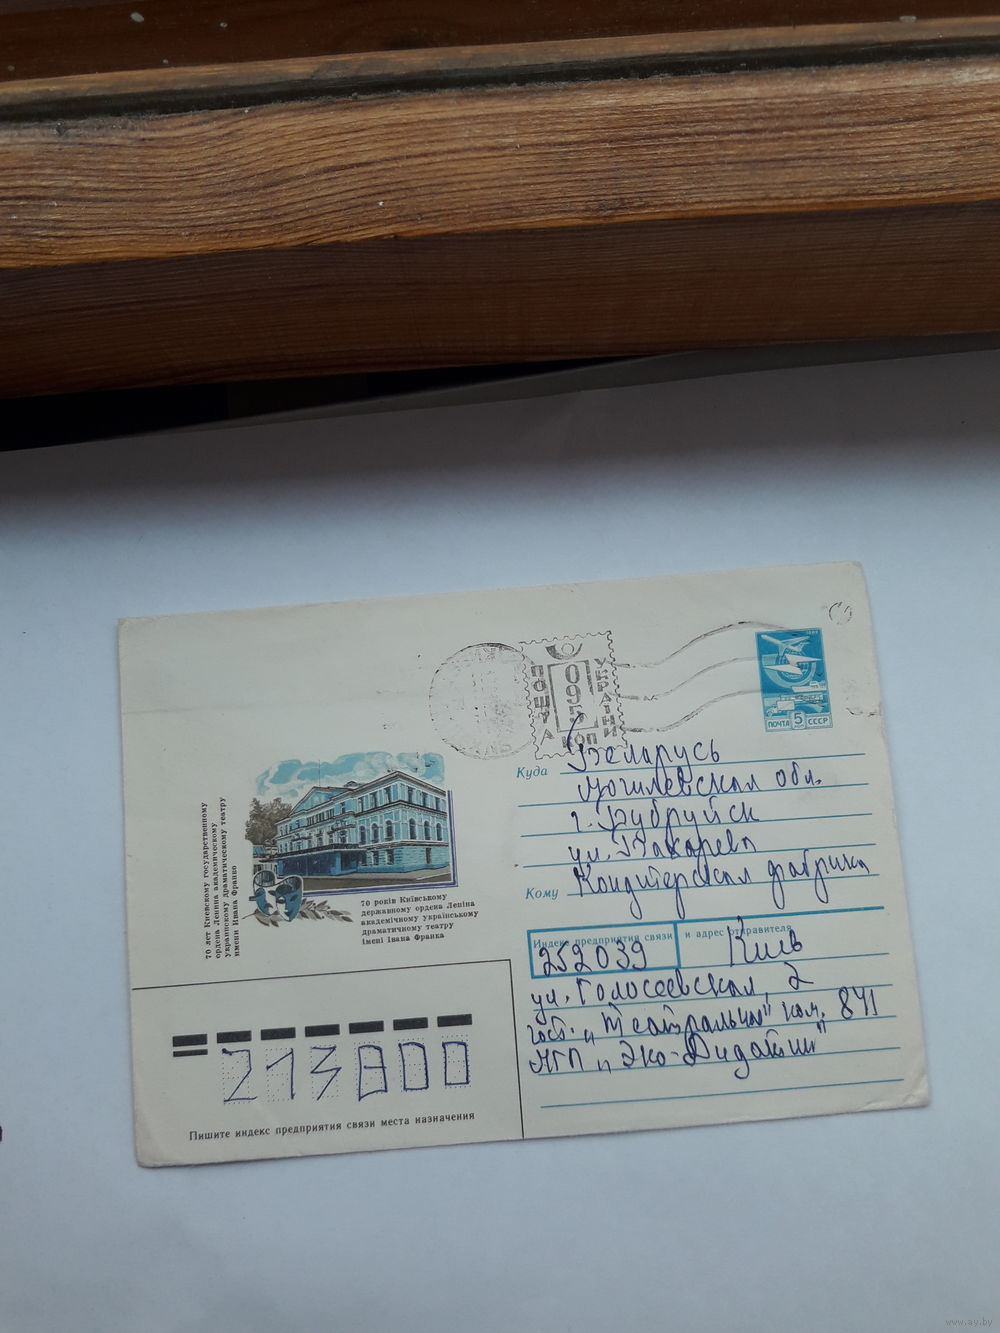 ПОШТА
УКРАЇНИ
095
КОП
1982
ПОЧТА 5 СССР
Куда Беларусь
Могилевская обл.
г. Бобруйск
ул. Бахарева
Кому Кондитерская фабрика
Индекс предприятия связи и адрес отправителя
252039 Киев
ул. Голосеевская, 2
гост. "Театральная" ком. 841
НПП "Эко-Дидактик"
70 лет Киевскому государственному
ордена Ленина академическому
украинскому драматическому театру
имени Ивана Франко
70 років Київському
державному ордена Леніна
академічному українському
драматичному театру
імені Івана Франка
213800
Пишите индекс предприятия связи места назначения
www.ay.by